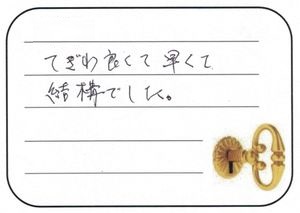 てぎわ良くて早くて
結構でした。